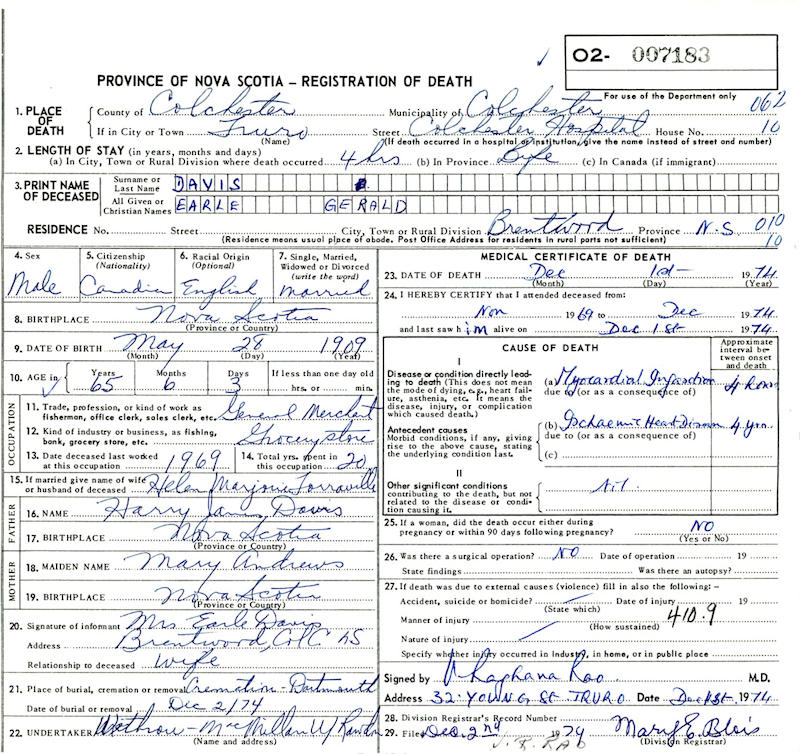 02- 007183
PROVINCE OF NOVA SCOTIA – REGISTRATION OF DEATH
For use of the Department only
062
1. PLACE OF DEATH
County of Colchester Municipality of Colchester
If in City or Town Truro Street Colchester Hospital House No. 10
(Name) (If death occurred in a hospital or institution, give the name instead of street and number)
2. LENGTH OF STAY (in years, months and days)
(a) In City, Town or Rural Division where death occurred 4 hrs (b) In Province Life (c) In Canada (if immigrant)
3. PRINT NAME OF DECEASED
Surname or Last Name DAVIS
All Given or Christian Names EARLE GERALD
RESIDENCE No. Street City, Town or Rural Division Brentwood Province N.S. 010
(Residence means usual place of abode. Post Office Address for residents in rural parts not sufficient) 10
4. Sex
Male
5. Citizenship (Nationality)
Canadian
6. Racial Origin (Optional)
English
7. Single, Married, Widowed or Divorced (write the word)
married
8. BIRTHPLACE Nova Scotia
(Province or Country)
9. DATE OF BIRTH May 28 1909
(Month) (Day) (Year)
10. AGE in Years Months Days If less than one day old
65 6 3 hrs. or min.
OCCUPATION
11. Trade, profession, or kind of work as fisherman, office clerk, sales clerk, etc. General Merchant
12. Kind of industry or business, as fishing, bank, grocery store, etc. Grocery store
13. Date deceased last worked at this occupation 1969
14. Total yrs. spent in this occupation 20
15. If married give name of wife or husband of deceased Helen Marjorie
FATHER
16. NAME Harry James Davis
17. BIRTHPLACE Nova Scotia
(Province or Country)
MOTHER
18. MAIDEN NAME Mary Andrews
19. BIRTHPLACE Nova Scotia
(Province or Country)
20. Signature of informant Mrs Earle Davis
Address Brentwood, Col. C. NS
Relationship to deceased wife
21. Place of burial, cremation or removal Cremation - Dartmouth
Date of burial or removal Dec 2/74
22. UNDERTAKER McMillan
(Name and address)
MEDICAL CERTIFICATE OF DEATH
23. DATE OF DEATH Dec 1st 1974
(Month) (Day) (Year)
24. I HEREBY CERTIFY that I attended deceased from:
Nov 1969 to Dec 1974
and last saw him alive on Dec 1st 1974
CAUSE OF DEATH
Approximate interval between onset and death
I
Disease or condition directly leading to death (This does not mean the mode of dying, e.g., heart failure, asthenia, etc. It means the disease, injury, or complication which caused death.)
(a) Myocardial Infarction 4 hours
due to (or as a consequence of)
Antecedent causes
Morbid conditions, if any, giving rise to the above cause, stating the underlying condition last.
(b) Ischaemic Heart Disease 4 yrs.
due to (or as a consequence of)
(c)
II
Other significant conditions contributing to the death, but not related to the disease or condition causing it.
Nil
25. If a woman, did the death occur either during pregnancy or within 90 days following pregnancy? NO
(Yes or No)
26. Was there a surgical operation? NO Date of operation 19
State findings Was there an autopsy?
27. If death was due to external causes (violence) fill in also the following:–
Accident, suicide or homicide? Date of injury 19
(State which)
Manner of injury 410.9
(How sustained)
Nature of injury
Specify whether injury occurred in Industry, in home, or in public place
Signed by Rao M.D.
Address 32. YOUNG St TRURO Date Dec 1st 1974
28. Division Registrar's Record Number
29. Filed Dec. 2nd 1974 Mary E. Blois
(Division Registrar)